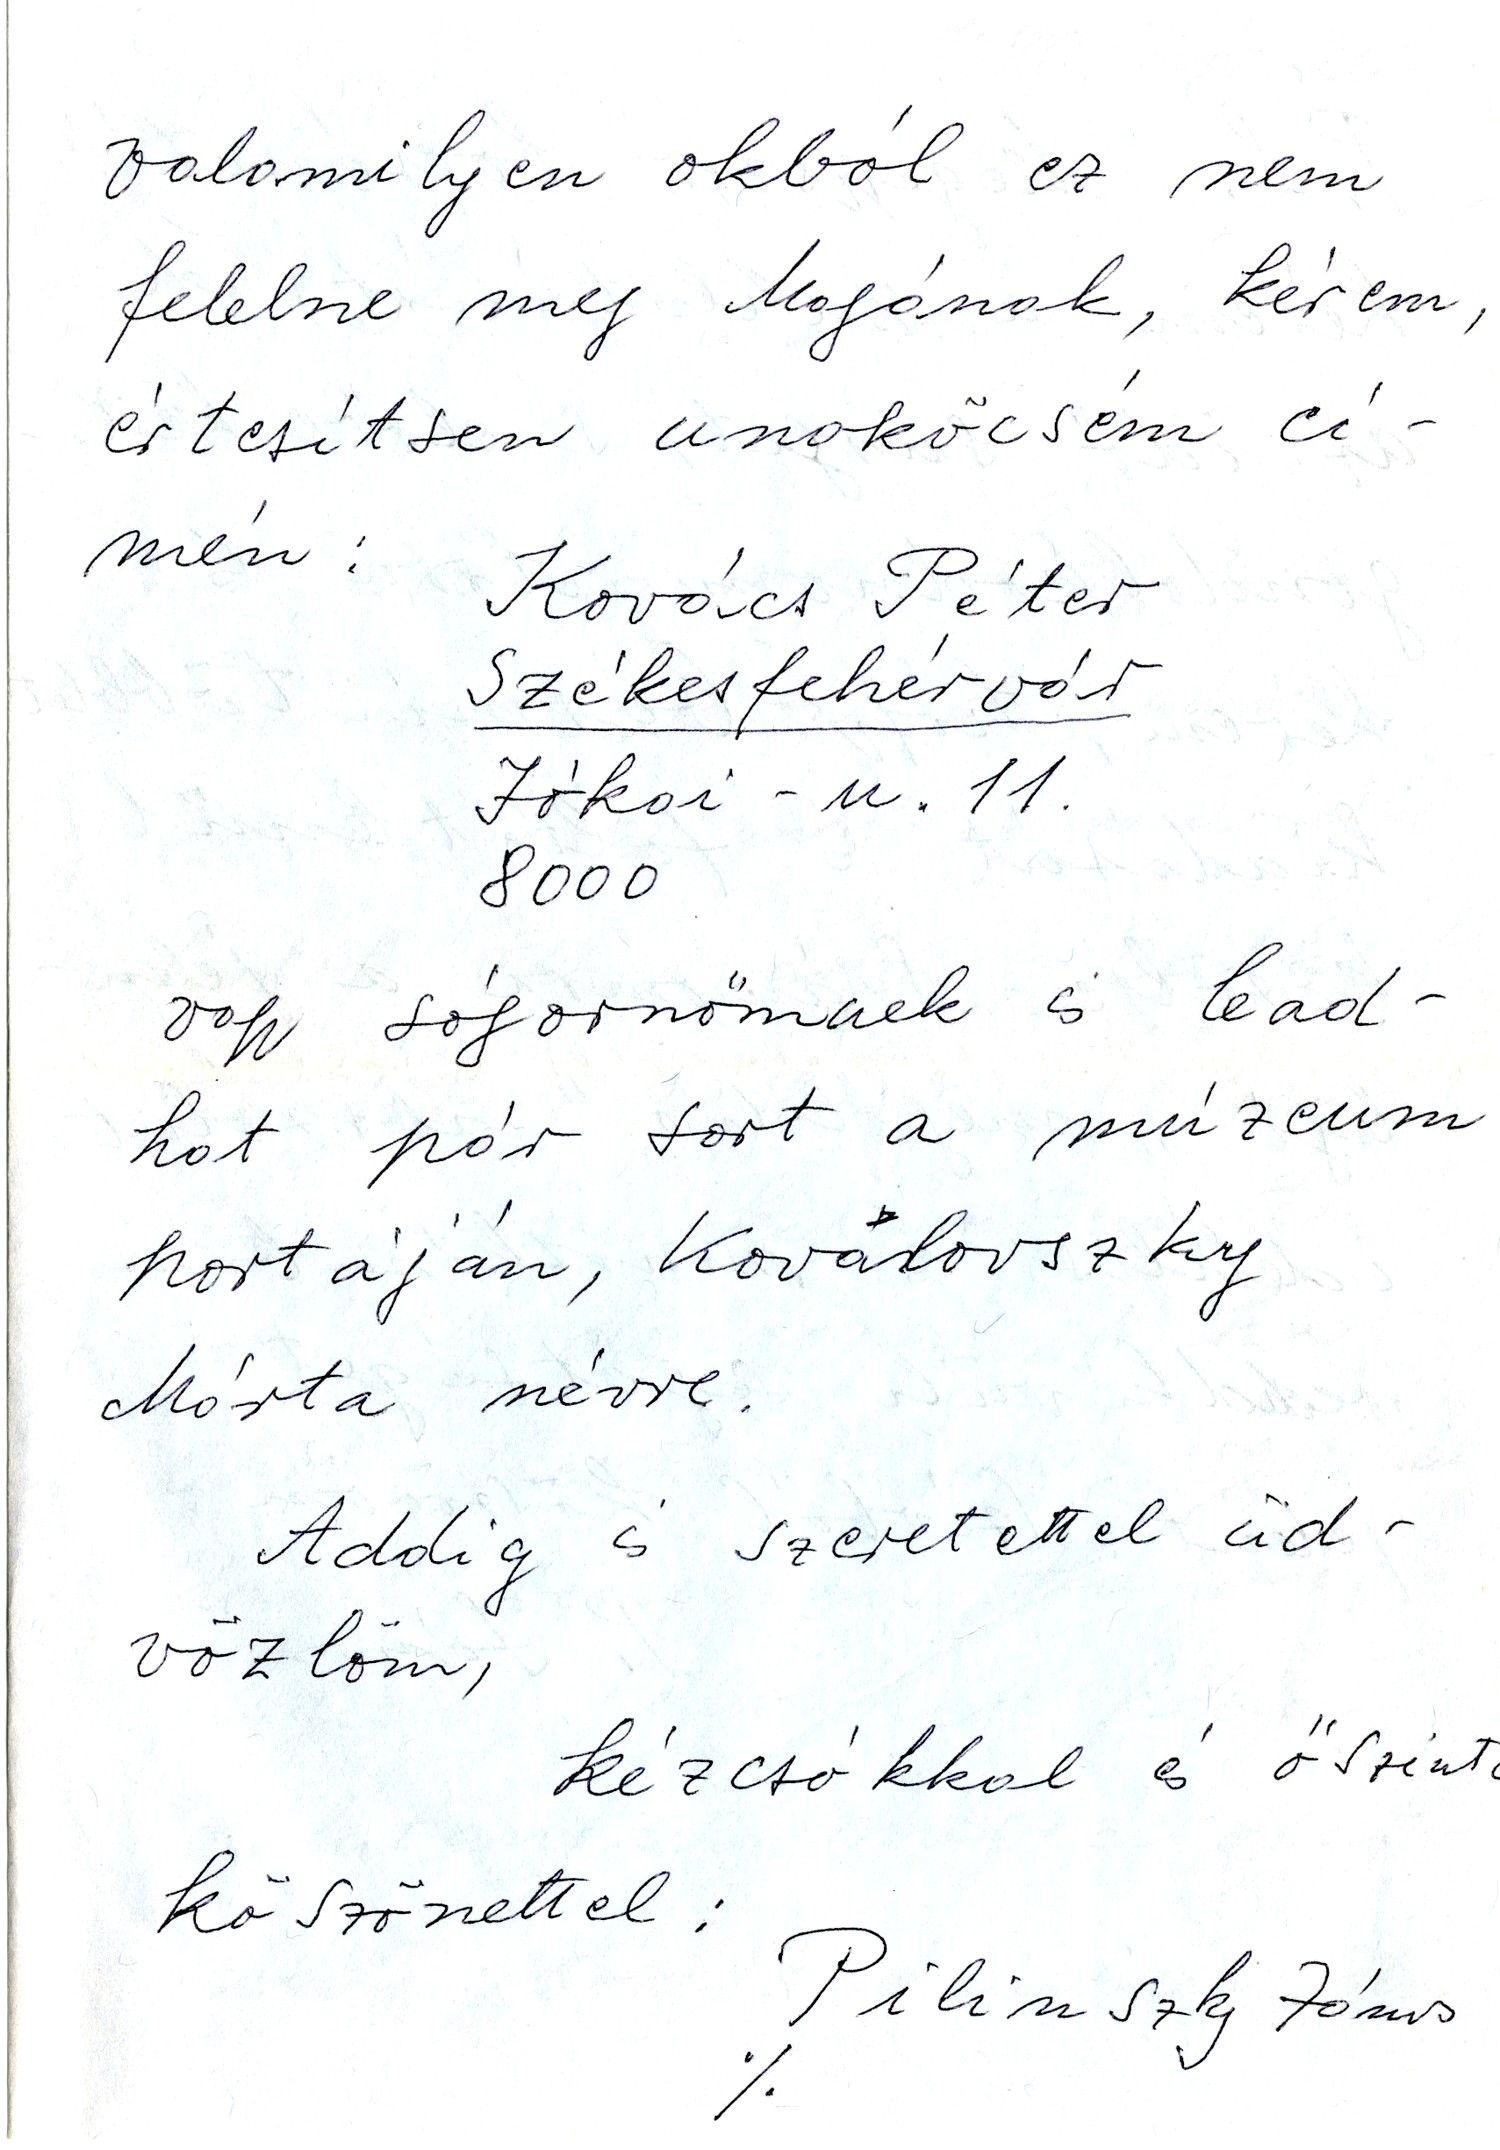 valamilyen okból ez nem
felelne meg Magának, kérem,
értesítsen unoköcsém cí-
mén:
Kovács Péter
Székesfehérvár
Jókai-u. 11.
8000
vagy sógornőmnek is lead-
hat pár sort a múzeum
portáján, Kovalovszky
Márta névre.
Addig is szeretettel üd-
vözlöm,
kézcsókkal és őszinte
köszönettel:
Pilinszky János
./.